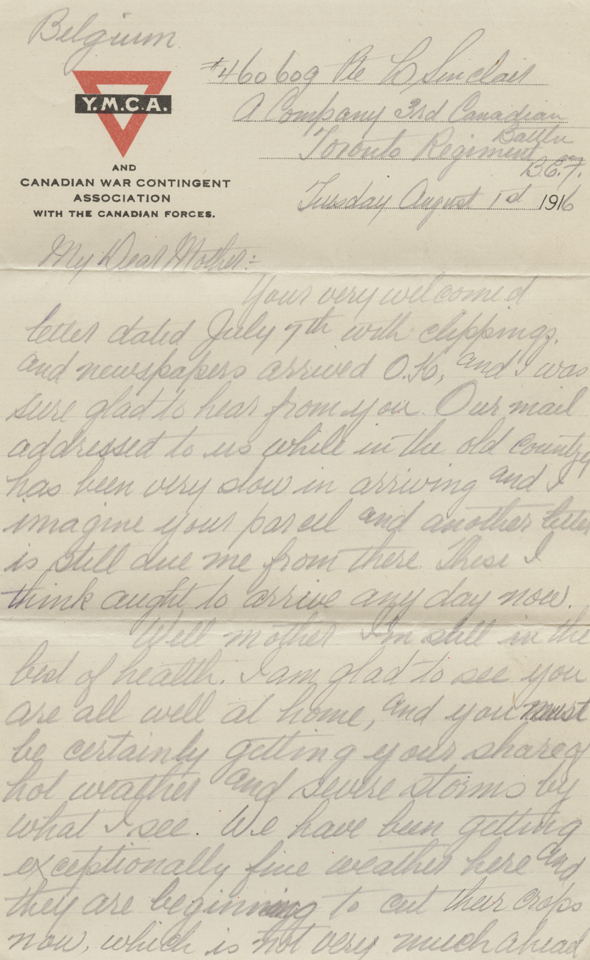 Belgium
#460609 Pte C Sinclair
A Company 3rd Canadian
Battn
Toronto Regiment
B.E.F.
Tuesday August 1st 1916
Y.M.C.A.
AND
CANADIAN WAR CONTINGENT
ASSOCIATION
WITH THE CANADIAN FORCES.
My Dear Mother:-
Your very welcomed
letter dated July 7th with clippings,
and newspapers arrived O.K, and I was
sure glad to hear from you. Our mail
addressed to us while in the old country
has been very slow in arriving and I
imagine your parcel and another letter
is still due me from there. These I
think aught to arrive any day now.
Well mother I'm still in the
best of health. I am glad to see you
are all well at home, and you must
be certainly getting your share of
hot weather and severe storms by
what I see. We have been getting
exceptionally fine weather here and
they are beginning to cut their crops
now, which is not very much ahead